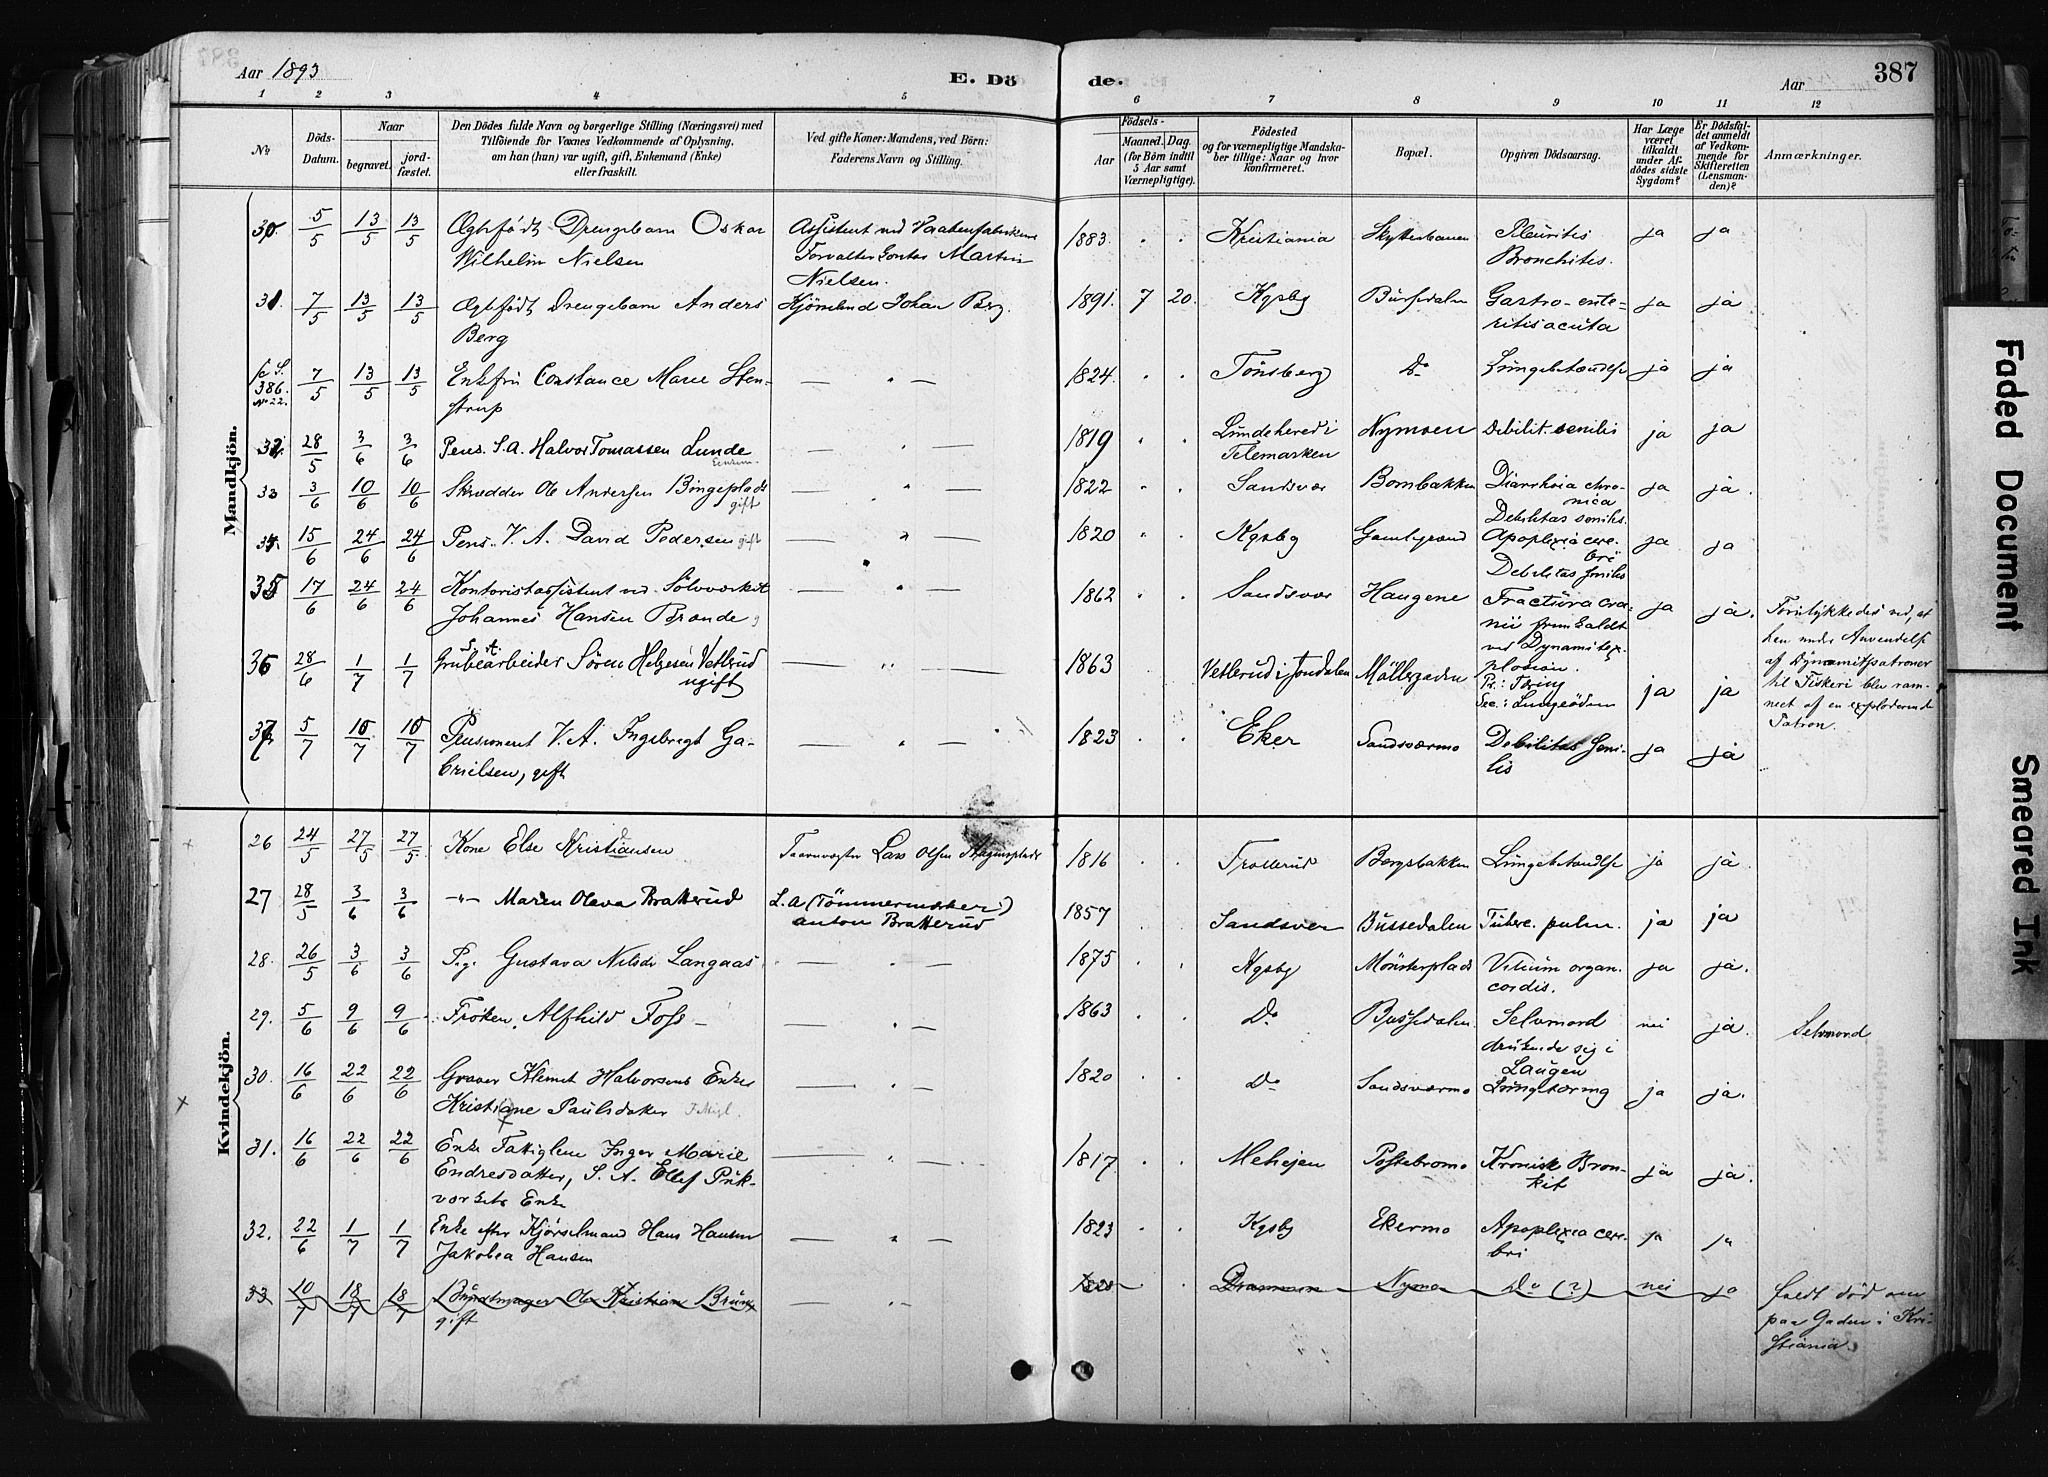 Aar 1893
E. Dö
de.
Aar
387
1 2 3 4 5 6 7 8 9 10 11 12
No
Döds-
Datum.
Naar
begravet.
jord-
fæstet.
Den Dödes fulde Navn og borgerlige Stilling (Næringsvei) med
Tilföiende for Voxnes Vedkommende af Oplysning,
om han (hun) var ugift, gift, Enkemand (Enke)
eller fraskilt.
Ved gifte Koner: Mandens, ved Börn:
Faderens Navn og Stilling.
Födsels-
Aar
Maaned. Dag.
(for Börn indtil
5 Aar samt
Værnepligtige).
Födested
og for værnepligtige Mandska-
ber tillige: Naar og hvor
konfirmeret.
Bopæl.
Opgiven Dödsaarsag.
Har Læge
været
tilkaldt
under Af-
dödes sidste
Sygdom?
Er Dödsfal-
det anmeldt
af Vedkom-
mende for
Skifteretten
(Lensman-
den)?
Anmærkninger.
Mandkjön.
30. 5/5 13/5 13/5 Ægtefødt Drengebarn Oskar Assistent ved Vaabenfabrikens 1883. Kristiania Skytterbanen Pleuritis ja ja
Wilhelm Nielsen Forvalter Martin Bronchitis.
Nielsen.
31. 7/5 13/5 13/5 Ægtefødt Drengebarn Anders Kjömand Johan Berg. 1891. 7 20. Kgsbg Bussedalen Gastro-ente- ja ja
Berg ritis acuta
fr S. 386. No 22. 7/5 13/5 13/5 Enkefru Constance Marie Sten- — " — 1824. Tönsberg Do Lungebetændelse ja ja
strup
32. 28/5 3/6 3/6 Pens. S.A. Halvor Tomassen Lunde — " — 1819 Lundehered i Nymoen Debilit. senilis ja ja
Enkem. Telemarken
33 3/6 10/6 10/6 Skrædder Ole Andersen Bingeplads — " — 1822 Sandsvær Bornbakken Diarrhoia chro- ja ja.
gift nica
Debilitas seniles.
34. 15/6 24/6 24/6 Pens. V. A. David Pedersen gift — " — 1820 Kgsbg Gamlegrend Apoplexia cere- ja ja
bri
Debilitas seniles
35 17/6 24/6 24/6 Kontoristassistent ved Sölvværket — " — 1862 Sandsvær Haugene Fractura cra- ja ja. Forulykkedes ved, at
Johannes Hansen Brænde g nii fremkaldt han under Anvendelse
ved Dynamitex- af Dynamitpatroner
plosion. til Fiskeri blev ram-
met af en exploderende
Patron.
36 28/6 1/7 1/7 S. A. Grubearbeider Sören Helgesen Vetlerud — " — 1863 Vetlerud i Jondalen Möllergaden Pr.: Tæring ja ja
ugift Sec.: Lungeödem
37 5/7 10/7 10/7 Pensioneret V. A. Ingebregt Ga- — " — 1823 Eker Sandsværmo Debilitas Seni- ja ja
brielsen, gift lis
Kvindekjön.
26 24/5 27/5 27/5. Kone Else Kristiansen Taarnvægter Lars Olsen 1816 Trollerud Bergsbakken Lungebetændelse ja ja.
27 28/5 3/6 3/6 —"— Maren Oleva Bratterud L. A (Tömmermærker) 1857 Sandsver Bussedalen Tuberc. pulm. ja ja
anton Bratterud
28. 26/5 3/6 3/6 Pige Gustava Nilsdr Langaas. — " — 1875 Kgsbg Mönsterplads Vitium organ. ja ja.
cordis.
29. 5/6 9/6 9/6 Fröken. Alfhild Foss — — " — 1863 Do Bussedalen. Selvmord nei ja. Selvmord
druknede sig i
Laagen
30. 16/6 22/6 22/6 Graver Klemet Halvorsens Enke — " — 1820 Do Sandsværmo Lungetæring ja ja.
Kristiane Paulsdatter Fattigl.
31. 16/6 22/6 22/6 Enke Fattiglem Inger Marie — " — 1817 Meheien Postebromo Kronisk Bron- ja ja.
Endresdatter, S. A. Ellef Puk- kit
værkets Enke
32. 22/6 1/7 1/7 Enke efter Kjörselmand Hans Hansen — " — 1823 Kgsbg Ekermo Apoplexia cere- ja ja
Jakobea Hansen bri
33 10/7 18/7 18/7 Ole Kristian — " — 1828 Drammen Nymoen Do (?) nei ja faldt död om
gift paa Gaden i Kri-
stiania.
Faded Document
Smeared Ink